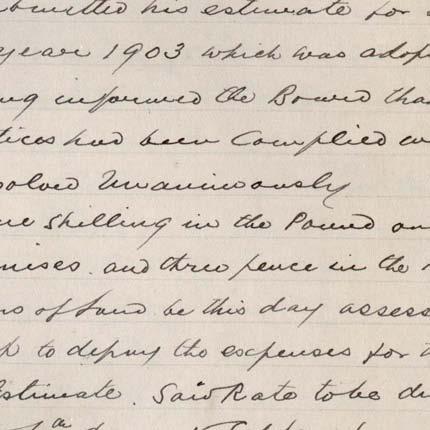 bmitted his estimate for
year 1903 which was adop
ng informed the Board tha
tices had been Complied w
solved Unanimously
ne Shilling in the Pound on
mises and three pence in the
ns of Land be this day assess
p to defray the expenses for
Estimate. Said Rate to be du